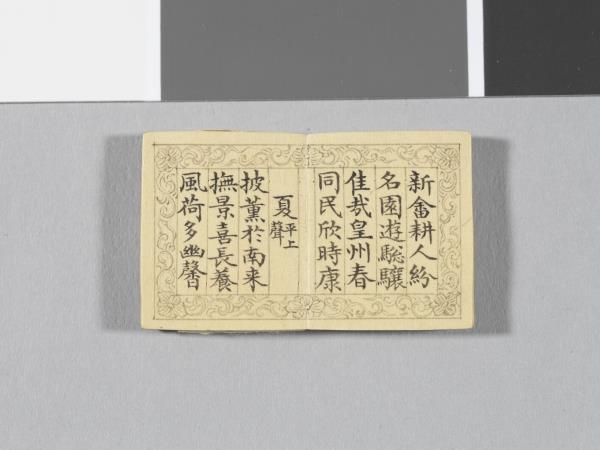 新畬耕人紛
名園遊騘驤
佳哉皇州春
同民欣時康
夏平上聲
披薰於南来
撫景喜長養
風荷多幽馨